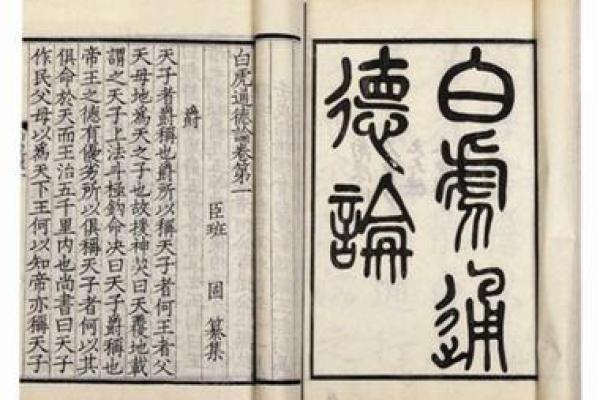 白虎通
德論
白虎通德論卷第一
臣班 固 纂集
爵
天子者爵稱也爵所以稱天子者何王者父
天母地爲天之子也故援神契曰天覆地載
謂之天子上法斗極鈎命决曰天子爵稱也
帝王之德有優劣所以俱稱天子者何以其
俱命於天而王治五千里內也尚書曰天子
作民父母以爲天下王何以知帝亦稱天子